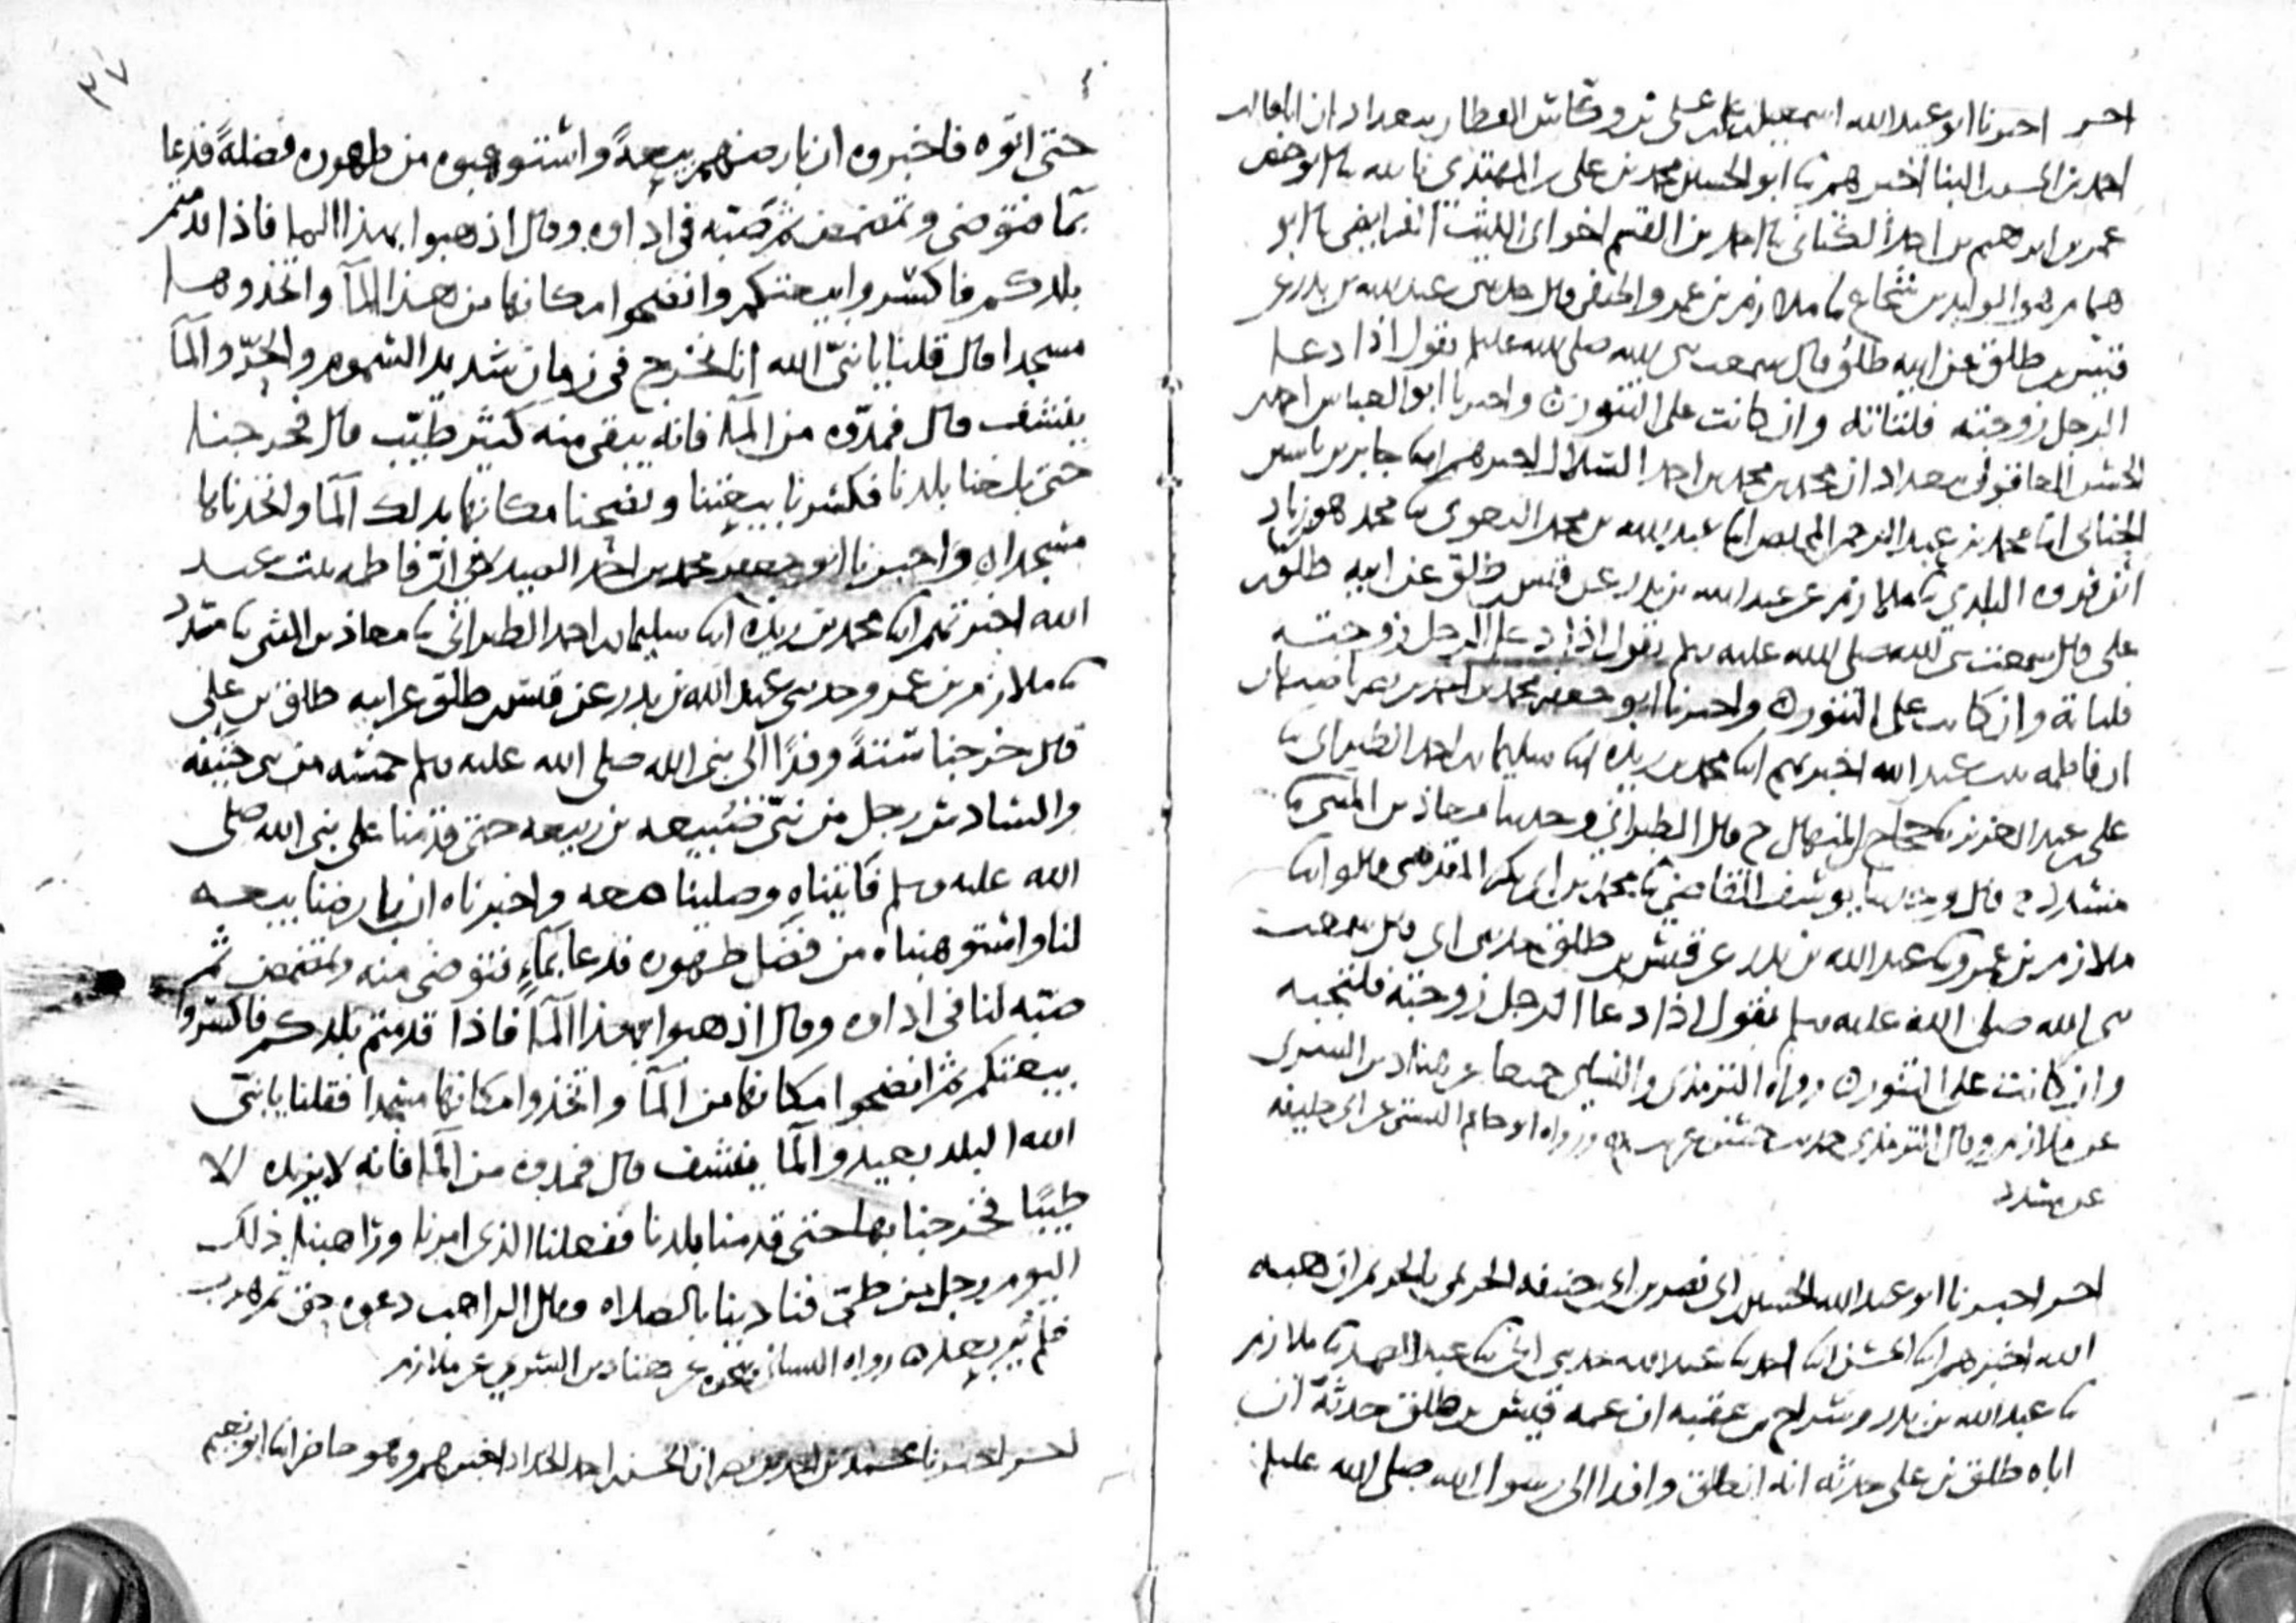 احر اخبرنا ابو عبد الله اسمعيل بن علي بن وكاس العطار ببغداد ان ابا غالب
احمد بن الحسن البنا اخبرهم ابنا ابو الحسين محمد بن علي بن المهتدي بالله نا ابو حفص
عمر بن ابرهيم بن احمد الكتاني نا احمد بن القسم اخو ابي الليث الفرايضي نا ابو
همام هو الوليد بن شجاع نا ملازم بن عمرو الحنفي قال حدثني عبد الله بن بدر عن
قيس بن طلق عن ابيه طلق قال سمعت نبي الله صلى الله عليه يقول اذا دعا
الرجل زوجته فلتاته وان كانت على التنور واخبرنا ابو العباس احمد
الحسن العاقولي ببغداد ان محمد بن محمد بن احمد السلال اخبرهم ابنا جابر بن ياسين
الحنائي ابنا محمد بن عبد الرحمن المخلص ابنا عبد الله بن محمد البغوي نا محمد هو زياد
ابن فروه البلدي نا ملازم عن عبد الله بن بدر عن قيس بن طلق عن ابيه طلق بن
علي قال سمعت نبي الله صلى الله عليه وسلم يقول اذا دعا الرجل زوجته
فلتاته وان كانت على التنور واخبرنا ابو جعفر محمد بن احمد بن نصر باصبهان
ان فاطمه بنت عبد الله اخبرتهم ابنا محمد بن ريذه ابنا سليمان بن احمد الطبراني نا
علي بن عبد العزيز نا حجاج بن المنهال ح قال الطبراني وحدثنا معاذ بن المثنى نا
مسدد ح قال وحدثنا يوسف القاضي نا محمد بن ابي بكر المقدمي قالوا ابنا
ملازم بن عمرو نا عبد الله بن بدر عن قيس بن طلق حدثني ابي قال سمعت
نبي الله صلى الله عليه وسلم يقول اذا دعا الرجل زوجته فلتجبه
وان كانت على التنور رواه الترمذي والنسائي جميعا عن هناد بن السري
عن ملازم وقال الترمذي حديث حسن غريب ورواه ابو حاتم البستي عن ابي خليفه
عن مسدد
احر اخبرنا ابو عبد الله الحسين بن ابي نصر بن ابي حنيفه الحريمي بالحريم ان هبه
الله اخبرهم ابنا الحسن ابنا احمد نا عبد الله حدثني ابي نا عبد الصمد نا ملازم
نا عبد الله بن بدر وسراج بن عقبه ان عمه قيس بن طلق حدثه ان
اباه طلق بن علي حدثه انه انطلق وافدا الى رسول الله صلى الله عليه
٣٧
حتى اتوه فاخبروه ان بارضهم بيعةً واستوهبوه من طهوره فضلةً فدعا
بما فتوضى وتمضمض ثم صبه في اداوه وقال اذهبوا بهذا الما فاذا قدمتم
بلدكم فاكسروا بيعتكم وانضحوا مكانها من هذا الماء واتخذوها
مسجدا قال قلنا يا نبي الله انا نخرج في زمان شديد السموم والحرّ والماء
ينشف قال فمدّوه من الماء فانه يبقى منه كثير طيّب قال فخرجنا
حتى بلغنا بلدنا فكسرنا بيعتنا ونضحنا مكانها بذلك الماء واتخذناها
مسجدا واخبرنا ابو جعفر محمد بن احمد الصيدلاني ان فاطمه بنت عبد
الله اخبرتهم ابنا محمد بن ريذه ابنا سليمان بن احمد الطبراني نا معاذ بن المثنى نا مسدد
نا ملازم بن عمرو حدثني عبد الله بن بدر عن قيس بن طلق عن ابيه طلق بن علي
قال خرجنا ستةً وفدًا الى نبي الله صلى الله عليه وسلم خمسه من بني حنيفه
والسادس رجل من بني ضبيعه بن ربيعه حتى قدمنا على نبي الله صلى
الله عليه وسلم فبايعناه وصلينا معه واخبرناه ان بارضنا بيعه
لنا واستوهبناه من فضل طهوره فدعا بماءٍ فتوضى منه وتمضمض ثم
صبه لنا في اداوه وقال اذهبوا بهذا الماء فاذا قدمتم بلدكم فاكسروا
بيعتكم ثم انضحوا مكانها من الماء واتخذوا مكانها مسجدا فقلنا يا نبي
الله البلد بعيد والماء ينشف قال فمدوه من الماء فانه لا يزيده الا
طيبًا فخرجنا بها حتى قدمنا بلدنا ففعلنا الذي امرنا وراهبنا ذلك
اليوم رجل من طيّ فنادينا بالصلاه وقال الراهب دعوه حق ثم هرب
فلم يُر بعد رواه النسائي بنحوه عن هناد بن السري عن ملازم
احر اخبرنا محمد بن احمد بن نصر ان الحسن بن احمد الحداد اخبرهم وهو حاضر ابنا ابو نعيم